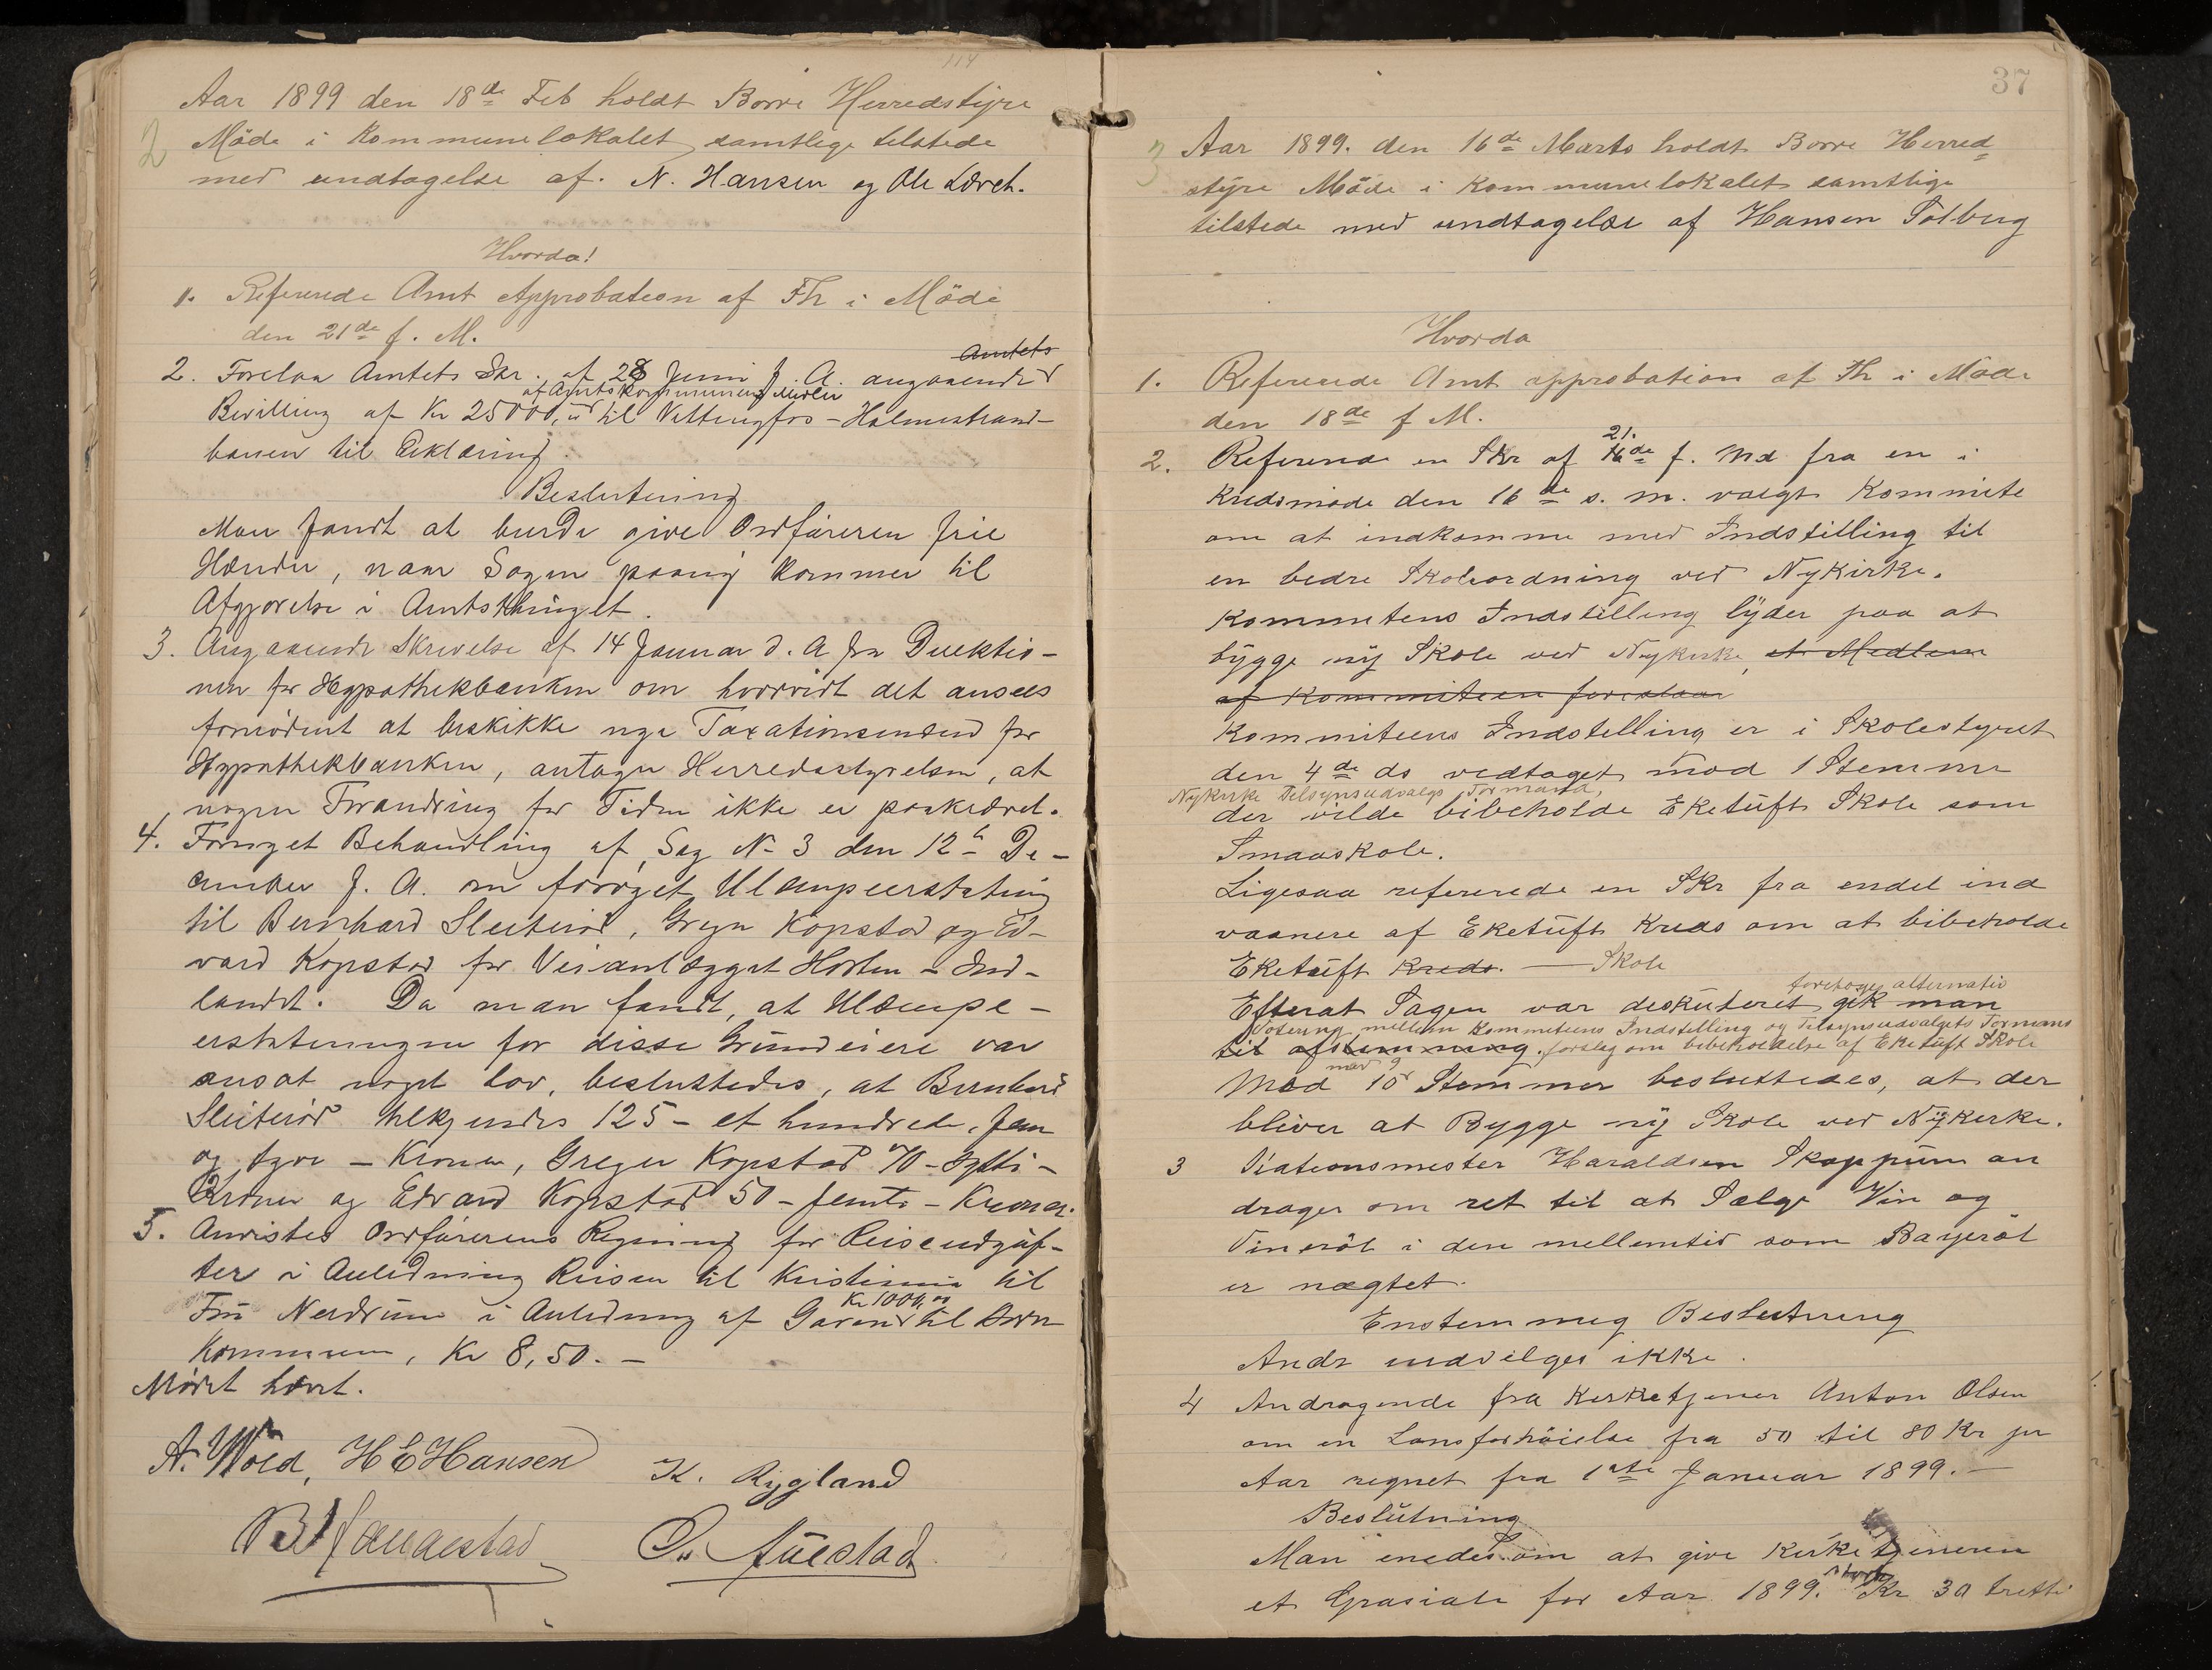 114
Aar 1899 den 18de Feb holdt Borre Herredstyre
2 Möde i Kommunelokalet, samtlige tilstede
med undtagelse af N. Hansen og Ole Lørch.
Hvorda!
1. Refererede Amt Approbation af Fh i Möde
den 21de f. M.
Amtets
2. Forelaa Amtets Skr. af 28 Juni f. A. angaaende
af Amtskommunens Midler
Bevilling af Kr 25000,00 til Vittingfos-Holmestrand-
banen til Erklæring.
Beslutning
Man fandt at burde give Ordföreren frie
Hænder, naar Sagen paany kommer til
Afgjørelse i Amtsthinget.
3. Angaaende Skrivelse af 14 Januar d. A fra Direktio-
nen for Hypothekbanken om hvorvidt det ansees
fornødent at beskikke nye Taxationsmænd for
Hypothekbanken, antager Herredsstyrelsen, at
nogen Forandring for Tiden ikke er paakrævet.
4. Fornyet Behandling af Sag No 3 den 12te De-
cember f. A. om forøget Ulempeerstatning
til Bernhard Sleiterød, Greger Kopstad og Ed-
vard Kopstad for Veianlægget Horten - Ind-
landet. Da man fandt, at Ulempe-
erstatningen for disse Grundeiere var
ansat noget lav, besluttedes, at Bernhard
Sleiterød tilkjendes 125 - et hundrede, fem
og tyve - Kroner, Greger Kopstad 70 - sytti -
Kroner og Edvard Kopstad 50 - femti - Kroner.
5. Anvistes Ordförerens Regning for Reiseudgif-
ter i Anledning Reisen til Kristiania til
Kr 1000,00
Fru Nerdrum i Anledning af Gaven til Borre
Kommune, Kr 8,50. -
Mødet hævet.
A. Wold, H E Hansen K. Rygland
B. Hangestad O. Auestad
37
3 Aar 1899. den 16de Marts holdt Borre Herred
styre Möde i Kommunelokalet samtlige
tilstede med undtagelse af Hansen Solberg
Hvorda
1. Refererede Amt approbation af Fh i Möde
den 18de f M.
21.
2. Refererede en Skr af 16de f. Md fra en i
Kredsmöde den 16de s. m. valgt Kommite
om at indkomme med Indstilling til
en bedre Skoleordning ved Nykirke.
Kommitens Indstilling lyder paa at
bygge ny Skole ved Nykirke, et Medlem
af Kommiteen foreslaar
Kommiteens Indstilling er i Skolestyret
den 4de ds vedtaget mod 1 Stemme
Nykirke Tilsynsudvalgs Formand,
der vilde bibeholde Eketuft Skole som
Smaaskole.
Ligesaa refererede en Skr fra endel ind
vaanere af Eketuft Kreds om at bibeholde
Eketuft Kreds. — Skole
foretoges alternativ
Efterat Sagen var diskuteret gik man
Votering mellem Kommiteens Indstilling og Tilsynsudvalgets Formans
til afstemning. forslag om bibeholdelse af Eketuft Skole
med 9
Mod 10 Stemmer besluttedes, at der
bliver at Bygge ny Skole ved Nykirke.
3 Stationsmester Haraldsen Skoppum an
drager om ret til at Sælge Vin og
Vinersöt i den mellemtid som Bayeröl
er nægtet.
Enstemmig Beslutning
Andr indvilges ikke.
4 Andragende fra Kirketjener Anton Olsen
om en Lönsforhöielse fra 50 til 80 Kr per
Aar regnet fra 1ste Januar 1899. -
Beslutning
Man enedes om at give Kirketjeneren
et Grasiale for Aar 1899. Kr 30 tretti